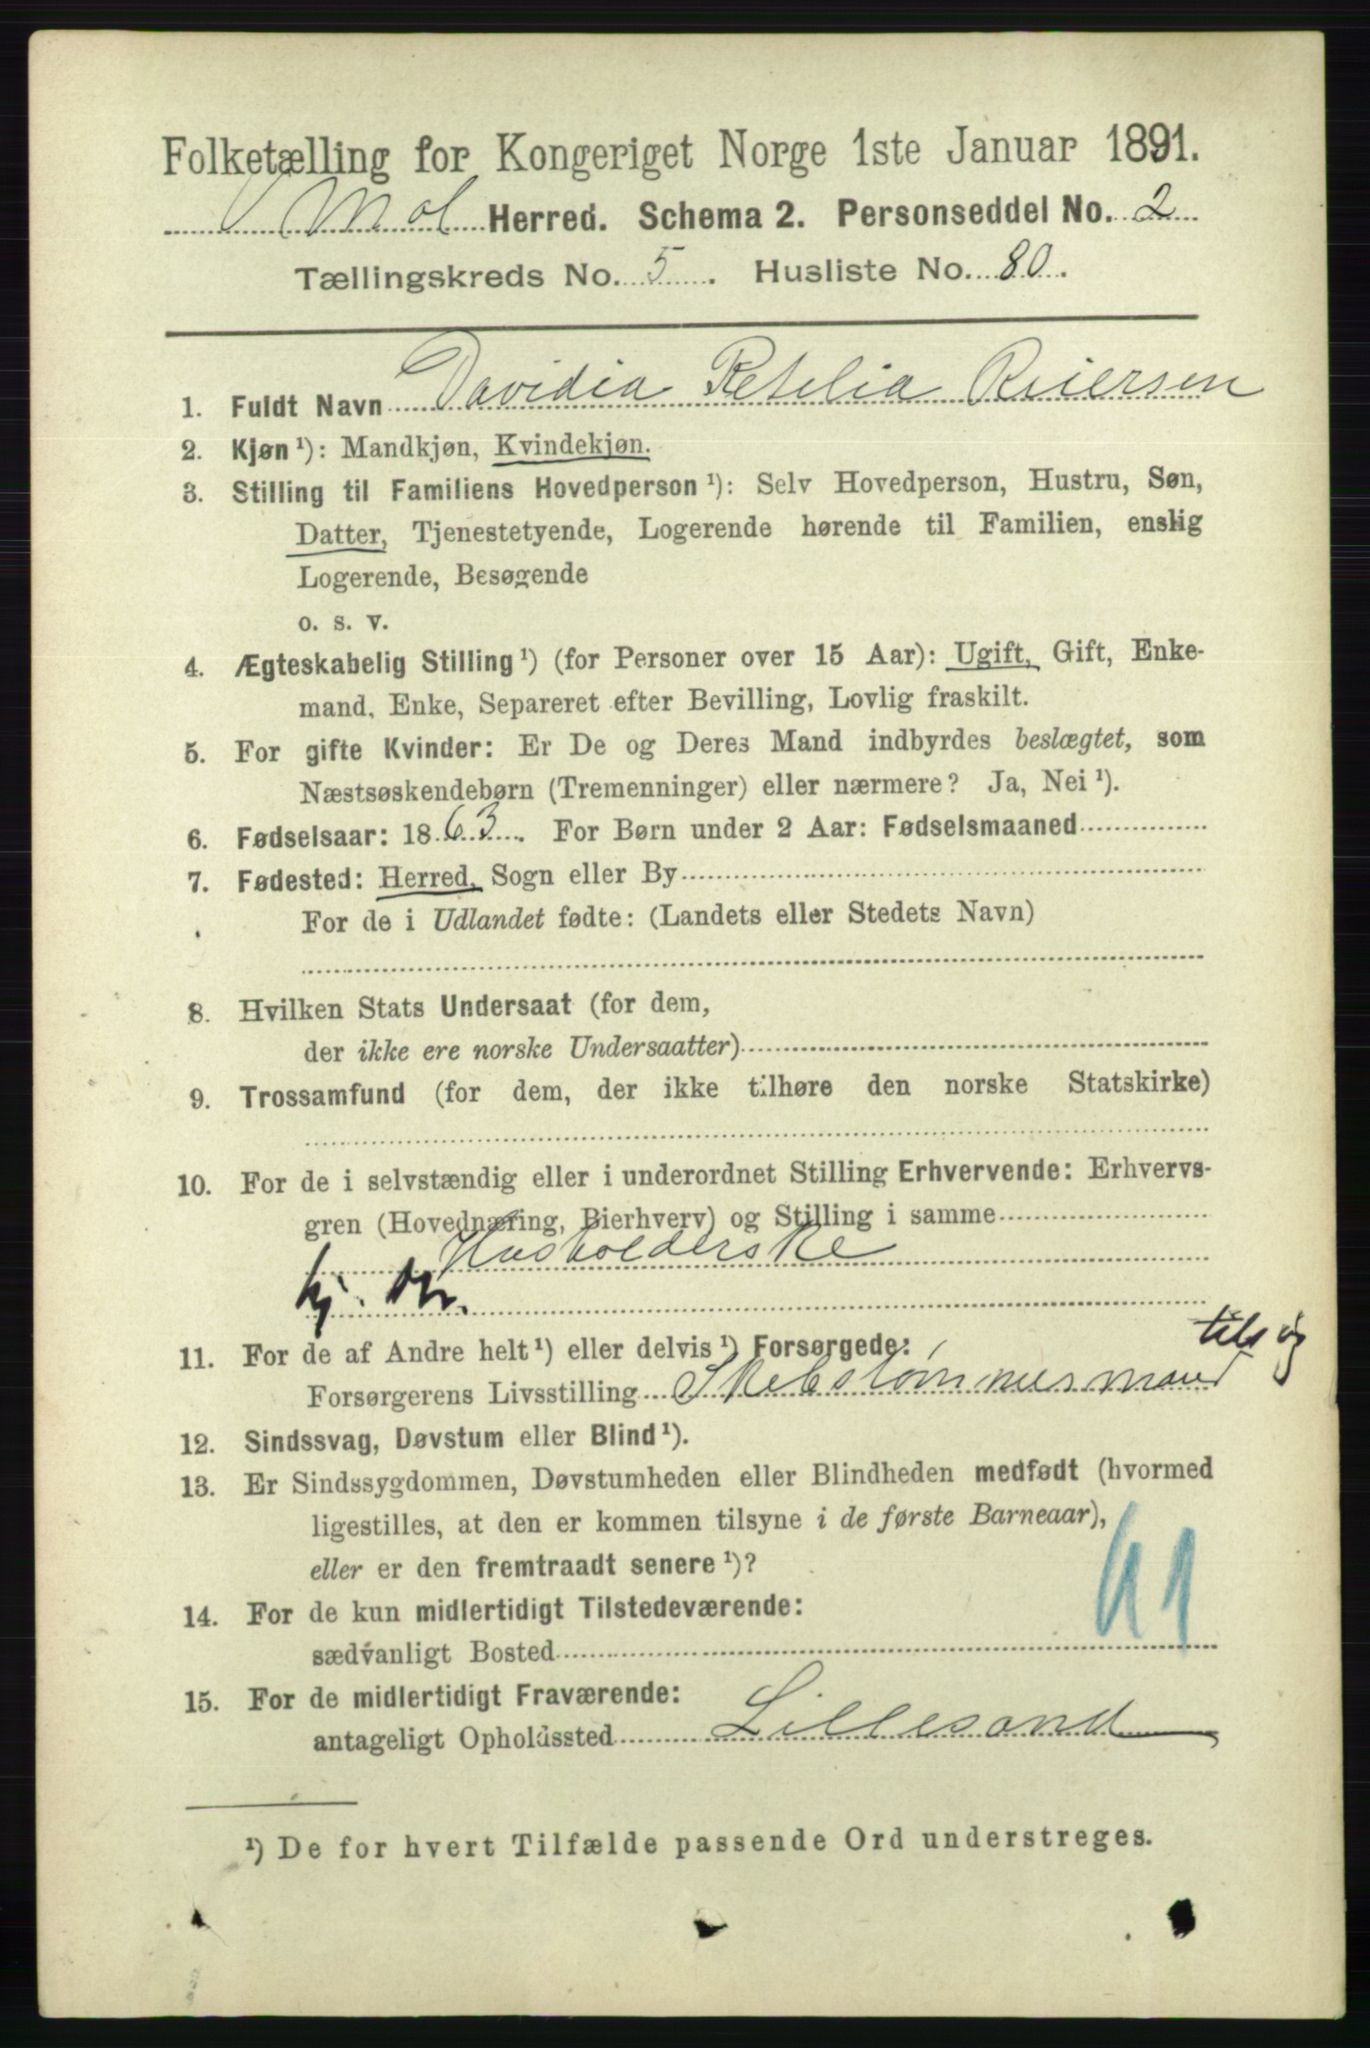 Folketælling for Kongeriget Norge 1ste Januar 1891.
V Mol Herred. Schema 2. Personseddel No. 2
Tællingskreds No. 5. Husliste No. 80.
1. Fuldt Navn Davidia Retelia Reiersen
2. Kjøn ¹): Mandkjøn, Kvindekjøn.
3. Stilling til Familiens Hovedperson ¹): Selv Hovedperson, Hustru, Søn,
Datter, Tjenestetyende, Logerende hørende til Familien, enslig
Logerende, Besøgende
o. s. v.
4. Ægteskabelig Stilling ¹) (for Personer over 15 Aar): Ugift, Gift, Enke-
mand, Enke, Separeret efter Bevilling, Lovlig fraskilt.
5. For gifte Kvinder: Er De og Deres Mand indbyrdes beslægtet, som
Næstsøskendebørn (Tremenninger) eller nærmere? Ja, Nei ¹).
6. Fødselsaar: 1863. For Børn under 2 Aar: Fødselsmaaned
7. Fødested: Herred, Sogn eller By
For de i Udlandet fødte: (Landets eller Stedets Navn)
8. Hvilken Stats Undersaat (for dem,
der ikke ere norske Undersaatter)
9. Trossamfund (for dem, der ikke tilhøre den norske Statskirke)
10. For de i selvstændig eller i underordnet Stilling Erhvervende: Erhvervs-
gren (Hovednæring, Bierhverv) og Stilling i samme
Husholderske
hj.
tils øg
11. For de af Andre helt ¹) eller delvis ¹) Forsørgede:
Forsørgerens Livsstilling Skibstømmermand
12. Sindssvag, Døvstum eller Blind ¹).
13. Er Sindssygdommen, Døvstumheden eller Blindheden medfødt (hvormed
ligestilles, at den er kommen tilsyne i de første Barneaar),
eller er den fremtraadt senere ¹)?
14. For de kun midlertidigt Tilstedeværende:
sædvanligt Bosted
15. For de midlertidigt Fraværende:
antageligt Opholdssted Lillesand
¹) De for hvert Tilfælde passende Ord understreges.